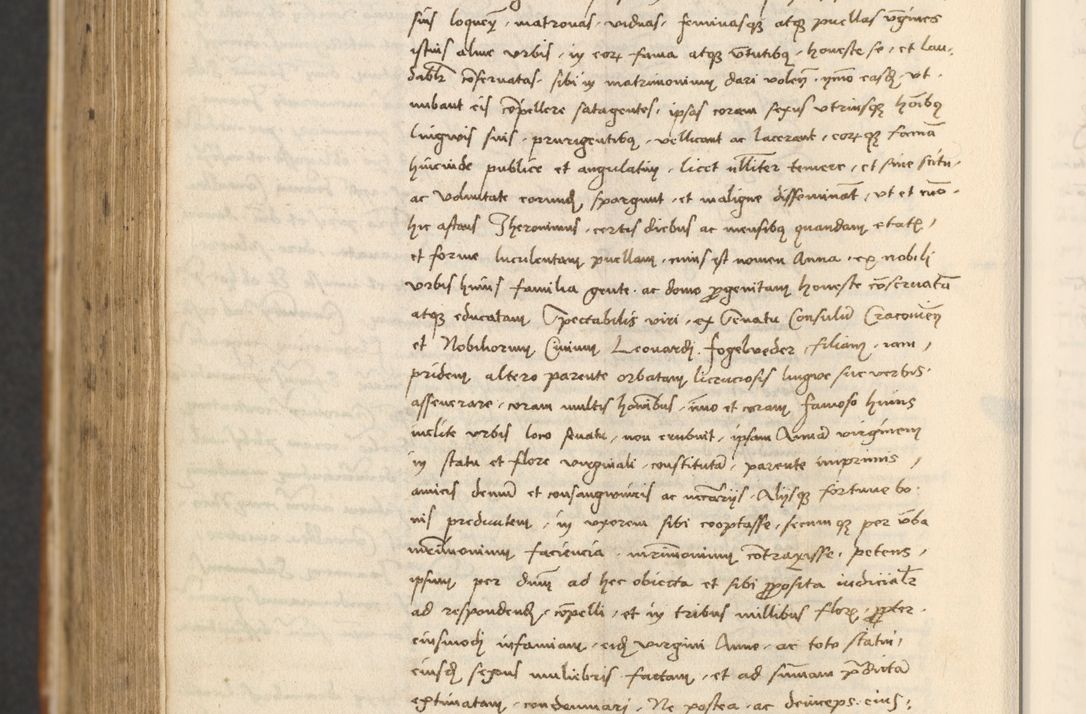 suis loquen͂, matronas, viduas, feminasq3 atq3 puellas v͂gines
istius alme vrbis, in eor͂ fama atq3 v͂tutibq3, honeste se, et lau-
dabl͂r co͂seruatas, sibi in matrimonium dari volen͂, ymo easd͂, vt
nubant eis co͂pellere satagentes, ipsas coram sexus vtriusq3 ho͂ibq3
linguis suis, prurigentibq3, vellicant ac lacerant, eor͂q3 fama͂
hincinde publice et angulatim, licet nl͂liter temere, et sine scitu
ac voluntate eorund͂, spargunt, et maligne disseminat͂, vt et
hic astans Iheronimus, certis diebus ac mensibq3 quandam etatis,
et forme luculentam puellam, cuius est nomen Anna, ex nobili
vrbis huius familia gente, ac domo p͂genitam honeste co͂seruata͂
atq3 educatam Spectabilis viri, ex Senatu Consulu͂ Cracouien͂
et Nobiliorum Ciuium Leonardi Fogelweder, filiam, iam,
pridem altero parente orbatam licraciosis lingwe sue verbis
asseuerare, coram multis ho͂nibus, i͂mo et coram famoso huius
inclite vrbis loco senatu, non erubuit, ipsam Anna͂ virginem
in statu et flore virginali, constituta͂, parente inprimis,
amicis demu͂ et consangwineis ac necc͂ariis, Aliisq3 fortune bo-
nis preditam, in vxorem sibi cooptasse, secumq3 per v͂ba
mr͂imonium faciencia, mr͂imonium co͂traxisse, petens,
ipsum per dnm͂ ad hec obiecta et sibi p͂posita iudicial͂r
ad respondend͂, co͂pelli, et in tribus millibus flor͂, p͂pter
eiusmodi infamiam, eid͂ virgini Anne, ac toto statui,
eiusd͂ sexus muliebris factam, et ad summam p͂dicta͂
extimatam, condemnari, Ne postea, ac deinceps, eius,